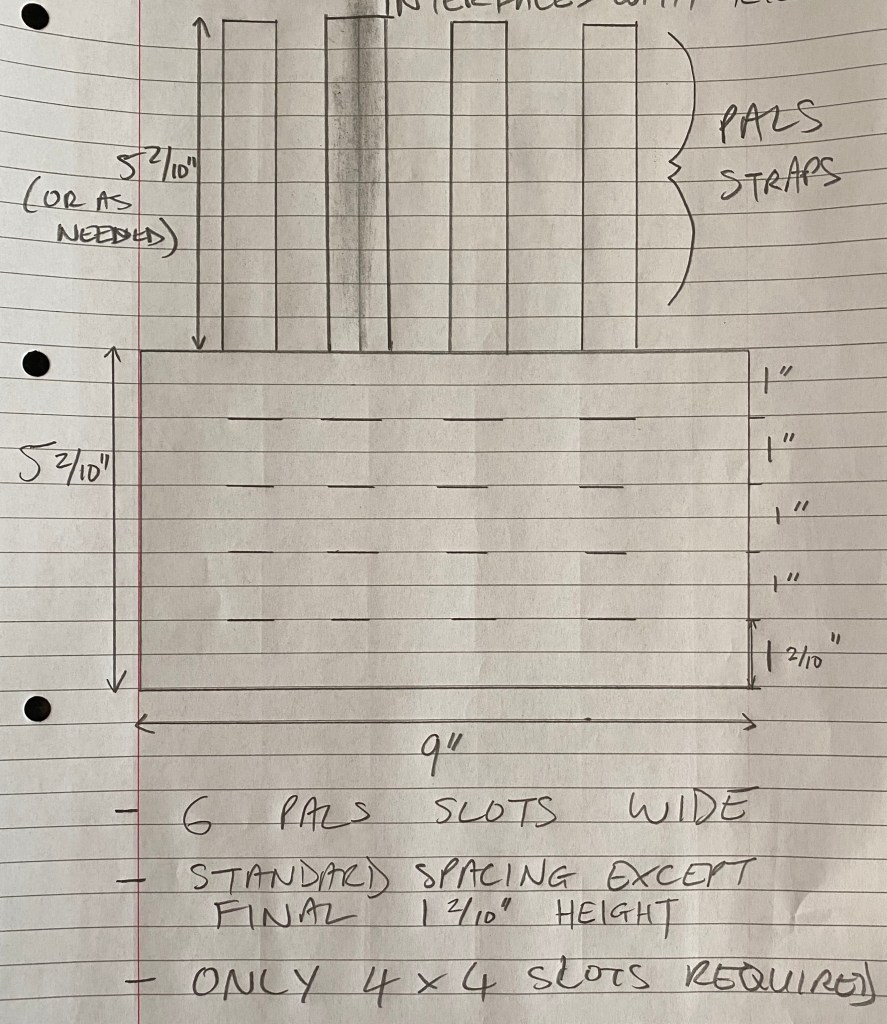 INTERFACES WITH
PALS
STRAPS
5 2/10"
(OR AS
NEEDED)
1"
1"
5 2/10"
1"
1"
1 2/10"
9"
- 6 PALS SLOTS WIDE
- STANDARD SPACING EXCEPT
FINAL 1 2/10" HEIGHT
- ONLY 4 x 4 SLOTS REQUIRED